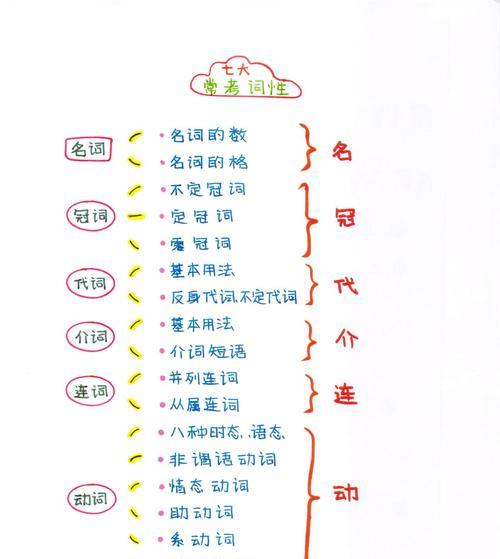 七大
常考词性
名词
名词的数
名词的格
名
冠词
不定冠词
定冠词
零冠词
冠
代词
基本用法
反身代词,不定代词
代
介词
基本用法
介词短语
介
连词
并列连词
从属连词
连
动词
八种时态、语态、
非谓语动词
情态动词
助动词
系动词
动